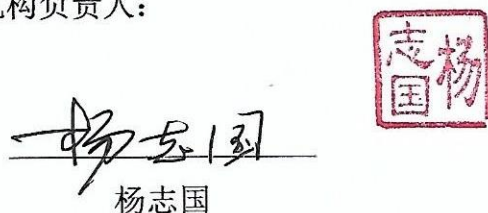 构负责人：
杨志国
杨志国
杨志国